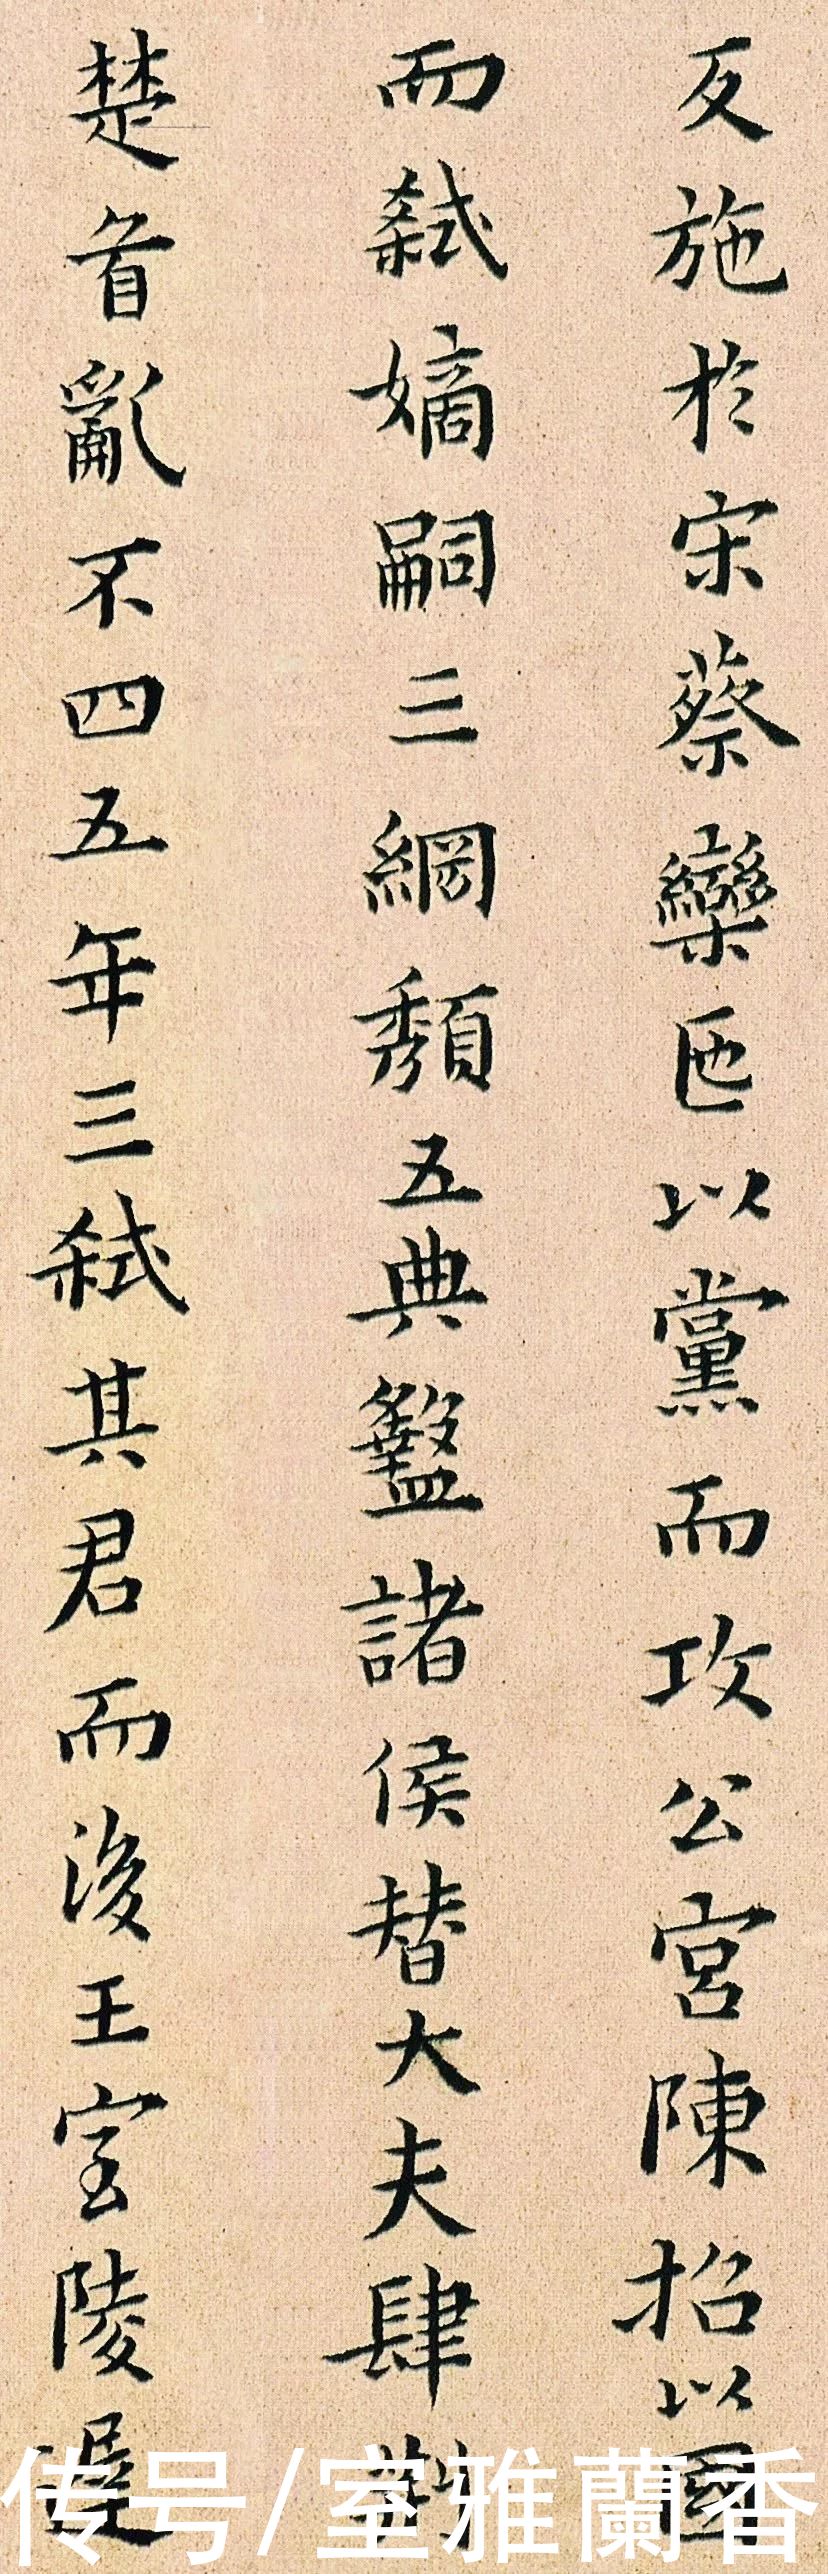 反施於宋蔡欒迊以黨而攻公宮陳招以國
而弒嫡嗣三綱頹五典盭諸侯替大夫肆荆
楚首亂不四五年三弒其君而後王室陵遲
传号/室雅蘭香